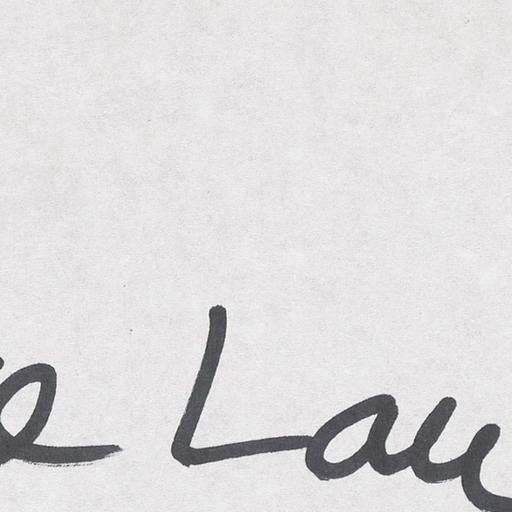 e Lau